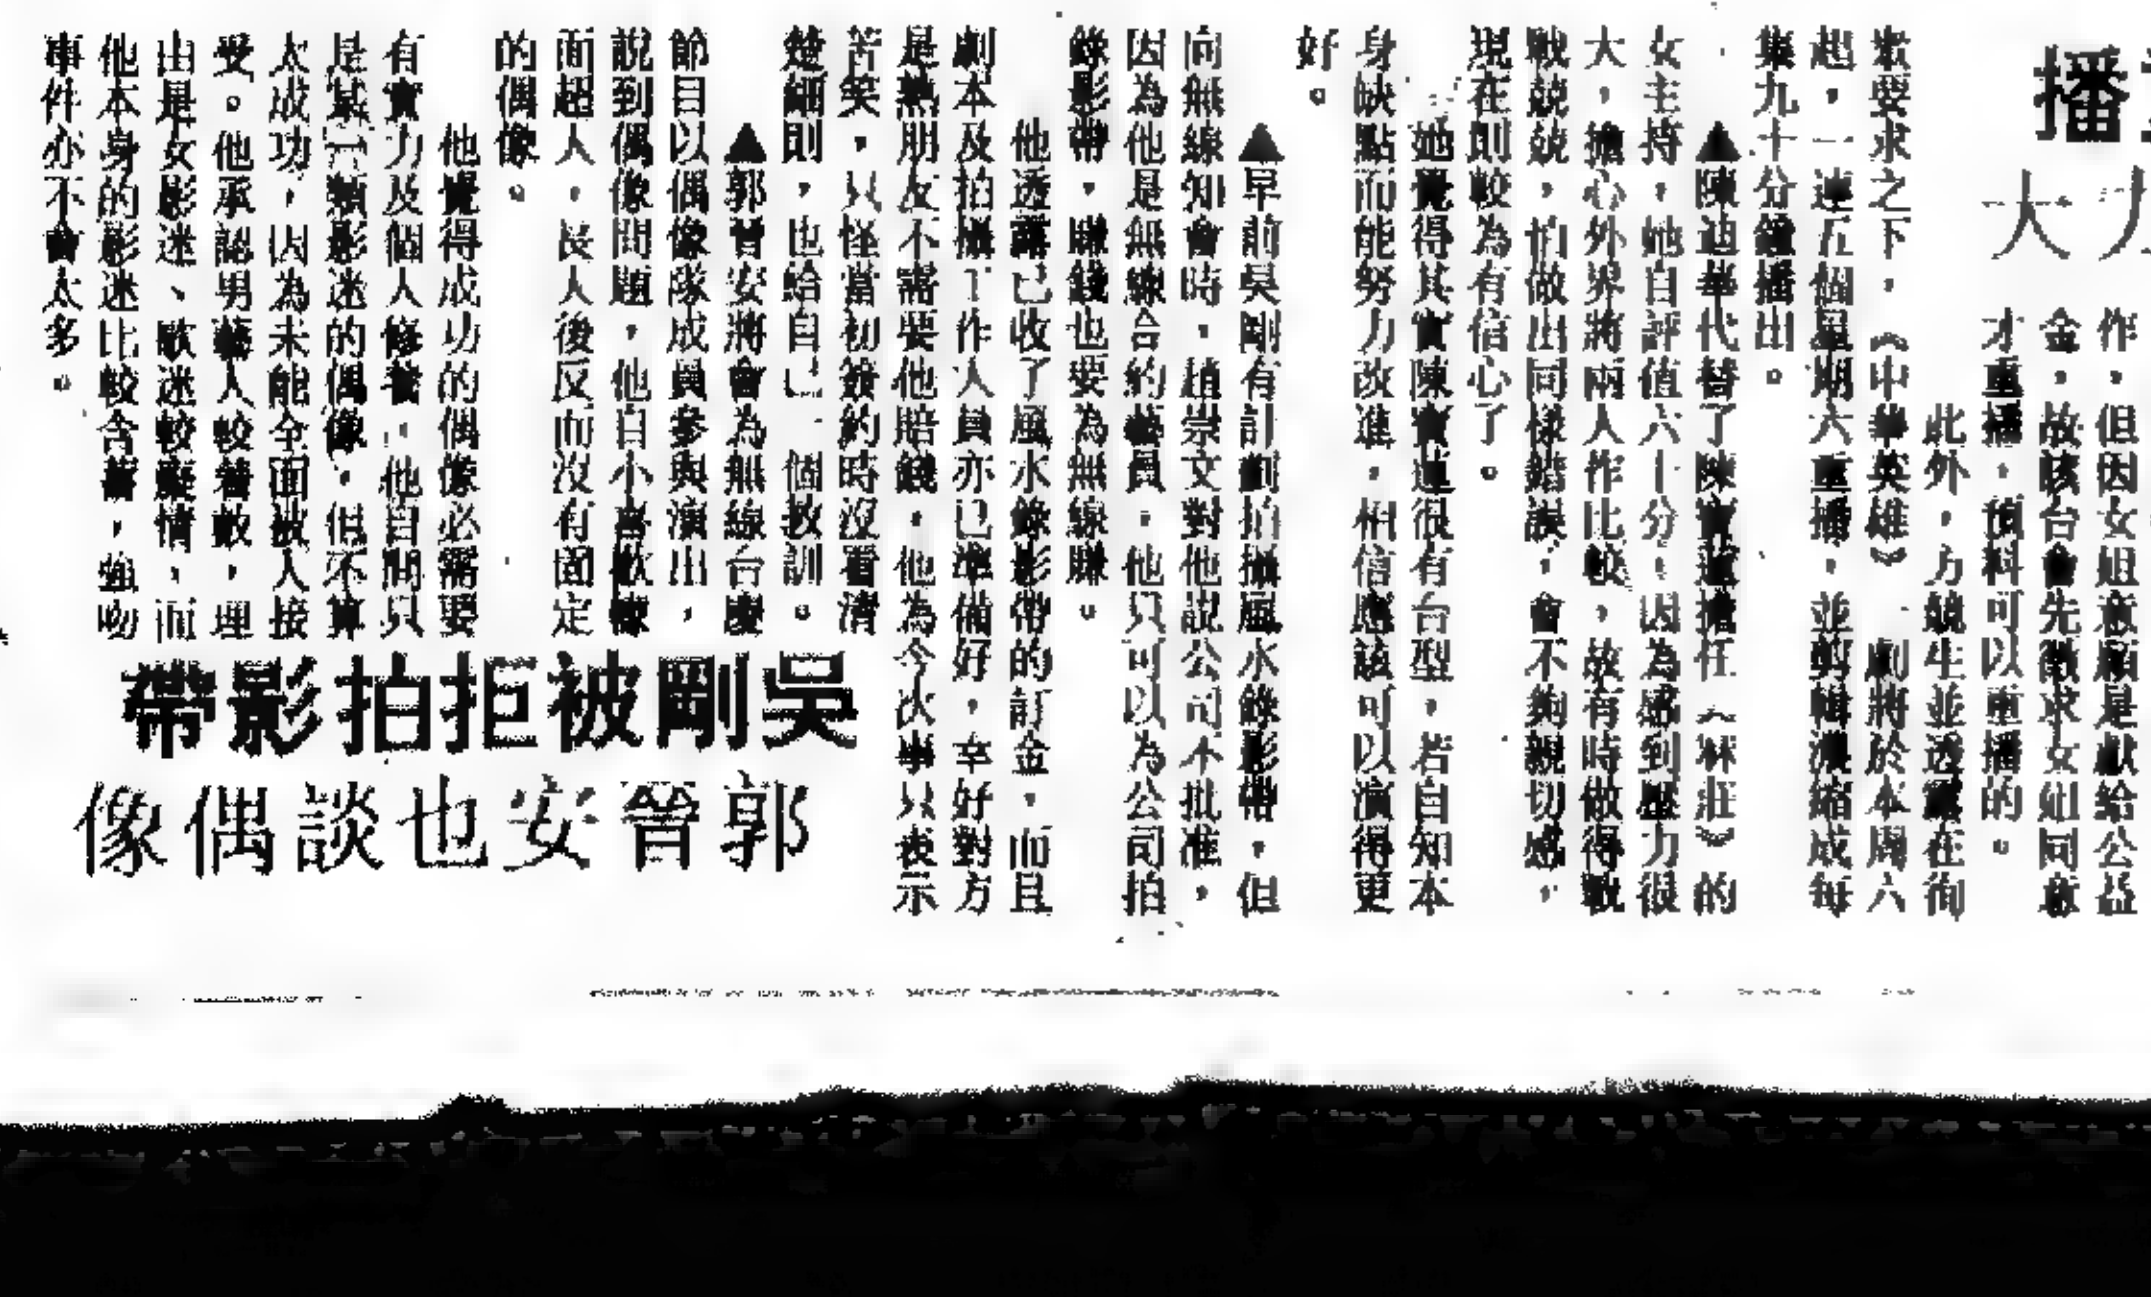 播
大
作，但因女姐意願是獻給公益
金，故該台會先徵求女姐同意
才重播，預料可以重播的。
此外，方競生並透露在徇
衆要求之下，《中華英雄》一劇將於本周六
起，一連五個星期六重播，並剪輯濃縮成每
集九十分鐘播出。
▲陳迪華代替了陳寶蓮擔任《冧莊》的
女主持，她自評值六十分，因為感到壓力很
大，擔心外界將兩人作比較，故有時做得戰
戰兢兢，怕做出同樣錯誤，會不夠親切感，
現在則較為有信心了。
她覺得其實陳寶蓮很有台型，若自知本
身缺點而能努力改進，相信應該可以演得更
好。
▲早前吳剛有計劃拍攝風水錄影帶，但
向無線知會時，趙崇文對他説公司不批准，
因為他是無線合約藝員，他只可以為公司拍
錄影帶，賺錢也要為無線賺。
他透露已收了風水錄影帶的訂金，而且
劇本及拍攝工作人員亦已準備好，幸好對方
是熟朋友不需要他賠錢，他為今次事只表示
苦笑，只怪當初簽約時沒看清
楚細則，也給自己一個教訓。
吳剛被拒拍影帶
郭晉安也談偶像
▲郭晉安將會為無線台慶
節目以偶像隊成員參與演出，
説到偶像問題，他自小喜歡幪
面超人，長人後反而沒有固定
的偶像。
他覺得成功的偶像必需要
有實力及個人修養，他自問只
是某類影迷的偶像，但不算
太成功，因為未能全面被人接
受。他承認男藝人較着數，理
由是女影迷、歌迷較癡情，而
他本身的影迷比較含蓄，強吻
事件亦不會太多。